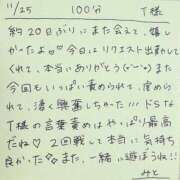 11/25 100分 T様
約20日ぶりにまた会えて、嬉し
かったよ♡今日はリクエスト出勤して
くれて、本当にありがとう(˘ᵕ˘)また
今回もいっぱい責められて、虐めら
れて、凄く興奮しちゃた!!!ドSな
T様の言葉責めはやっぱり最高
だね♡2回戦して本当に気持ち
良かった✩✩また、一緒に遊ぼうね!!
みと